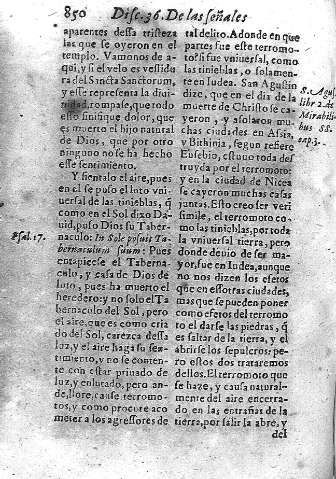 850 Disc. 36. De las señales
aparentes dessa tristeza
las que se oyeron en el
templo. Vamonos de a-
qui, y si el velo es vestidu
ra del Sancta Sanctorum,
y esse representa la divi-
nidad, rompase, que todo
esto sinifique dolor, que
es muerto el hijo natural
de Dios, que por otro
ninguno no se ha hecho
esse sentimiento.
Y sientalo el aire, pues
en el se puso el loto vni
versal de las tinieblas, q̃
como en el Sol dizo Da-
uid, puso Dios su Taber-
naculo: In Sole posuit Ta-
bernaculum suum: Pues
entapicese el Taberna-
culo, y casa de Dios de
luto, pues ha muerto el
heredero: y no solo el Ta
bernaculo del Sol, pero
el aire, que es como cria
do del Sol, carezca dessa
luz, y el aire haga su sen-
timiento, y no se conten-
te con estar priuado de
luz, y enlutado, pero an-
de, llore, cause terremo-
tos, y como procure aco
meter a los agressores de
Psal. 17.
tal delito. Adonde en que
partes fue este terremo-
to? si fue vniuersal, como
las tinieblas, o solamen-
te en Iudea. San Agustin
dize, que en el dia de la
muerte de Christo se ca-
yeron, y asolaron mu-
chas ciudades en Assia,
y Bithinia, segun refiere
Eusebio, estuuo toda des
truyda por el terremoto:
y en la ciudad de Nicea
se cayeron muchas casas
juntas. Esto creo ser veri
simile, el terremoto co-
mo las tinieblas, por toda
la vniuersal tierra, pero
donde deuio de ser ma-
yor, fue en Iudea, aunque
no nos dizen los efetos
que en essotras ciudades,
mas que se pueden poner
como efetos del terremo
to el darse las piedras, q̃
es saltar de la tierra, y el
abrirse los sepulcros; pe-
ro estos dos trataremos
dellos. El terremoto que
se haze, y causa natural-
mente del aire encerra-
do en las entrañas de la
tierra, por salir la abre, y
del
S. Agus.
libr 2. de
Mirabili-
bus SS.
cap. 3.